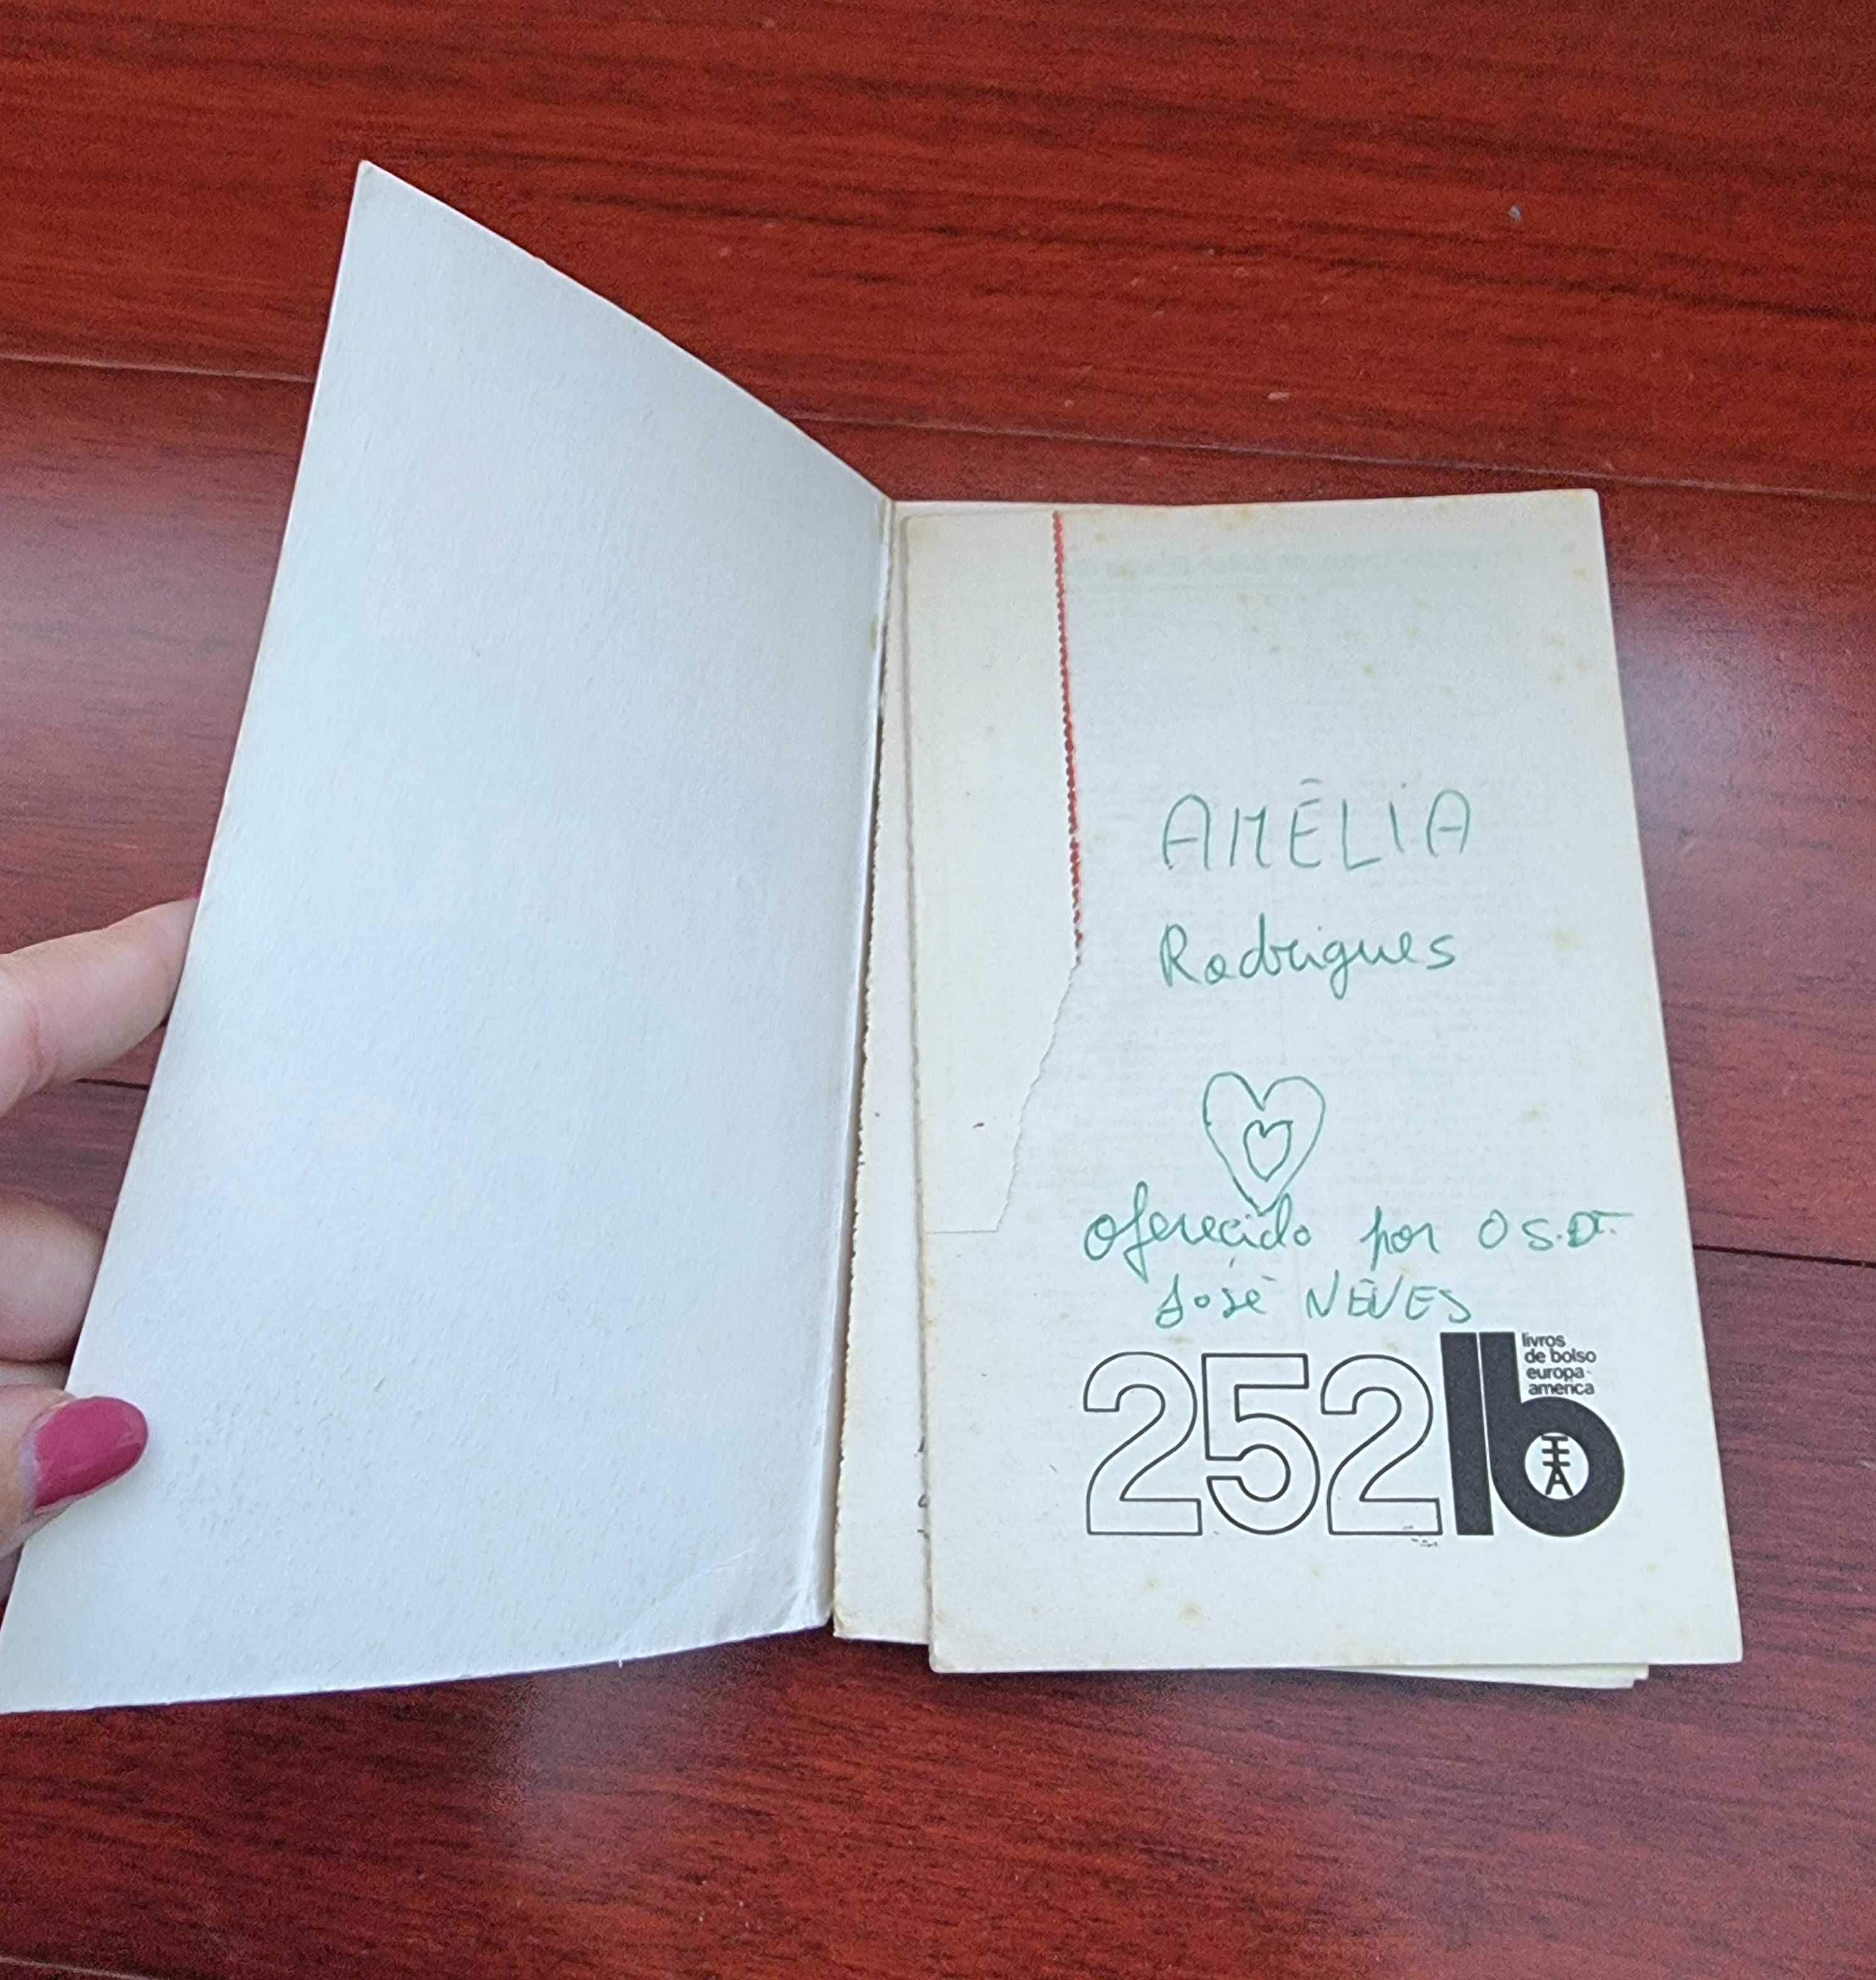 AMÉLIA
Rodrigues
oferecido por O S. DT.
José NEVES
252 lb
livros
de bolso
europa-
america